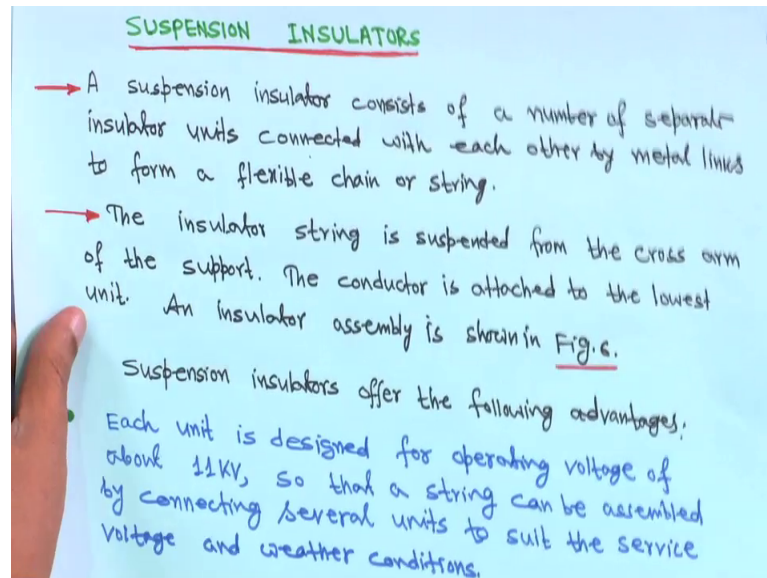 SUSPENSION INSULATORS
A suspension insulator consists of a number of separate
insulator units connected with each other by metal links
to form a flexible chain or string.
The insulator string is suspended from the cross arm
of the support. The conductor is attached to the lowest
unit. An insulator assembly is shown in Fig.6.
Suspension insulators offer the following advantages:
Each unit is designed for operating voltage of
about 11KV, so that a string can be assembled
by connecting several units to suit the service
voltage and weather conditions.